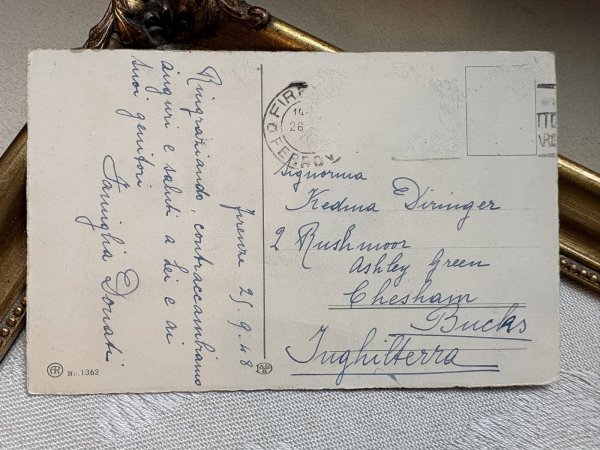 Firenze 25.9.48
Ringraziando, contraccambiamo
auguri e saluti a Lei e ai
suoi genitori
Famiglia Donati
FIR
14
26
FERROV
Signorina
Kedma Diringer
2 Rushmoor
Ashley Green
Chesham
Bucks
Inghilterra
No. 1362